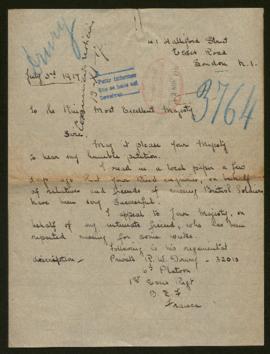 Drury
41 Halliford Street
Essex Road
London N.1.
July 3rd 1917
3764
To the King's Most Excellent Majesty
Sire,
May it please Your Majesty
to hear my humble petition.
I read in a local paper a few
days ago that Your kind enquiries, on behalf
of relatives and friends of missing British Soldiers
have been very successful.
I appeal to Your Majesty, on
behalf of my intimate friend, who has been
reported missing for some weeks.
Following is his regimental
description - Private P. W. Drury - 32013
Platoon
1st Essex Regt
B. E. F
France